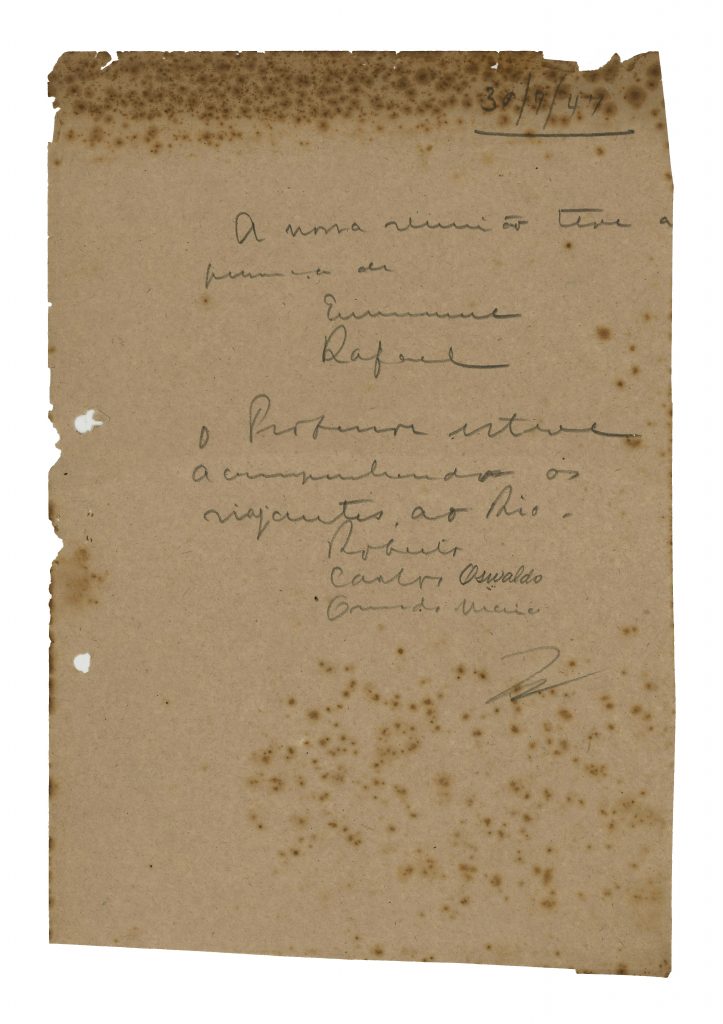 30/9/47
A nossa reunião teve a
presença de
Emmanuel
Rafael
O Professor esteve
acompanhando os
viajantes, ao Rio.
Roberto
Carlos Oswaldo
Maria